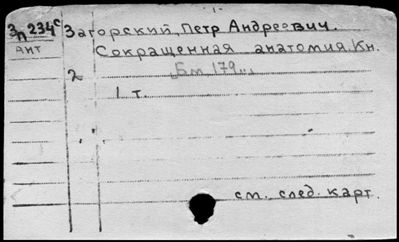 Зп 234с Загорский, Петр Андреевич.
АНТ Сокращенная анатомия. Кн.
2
1 т.
см. след. карт.